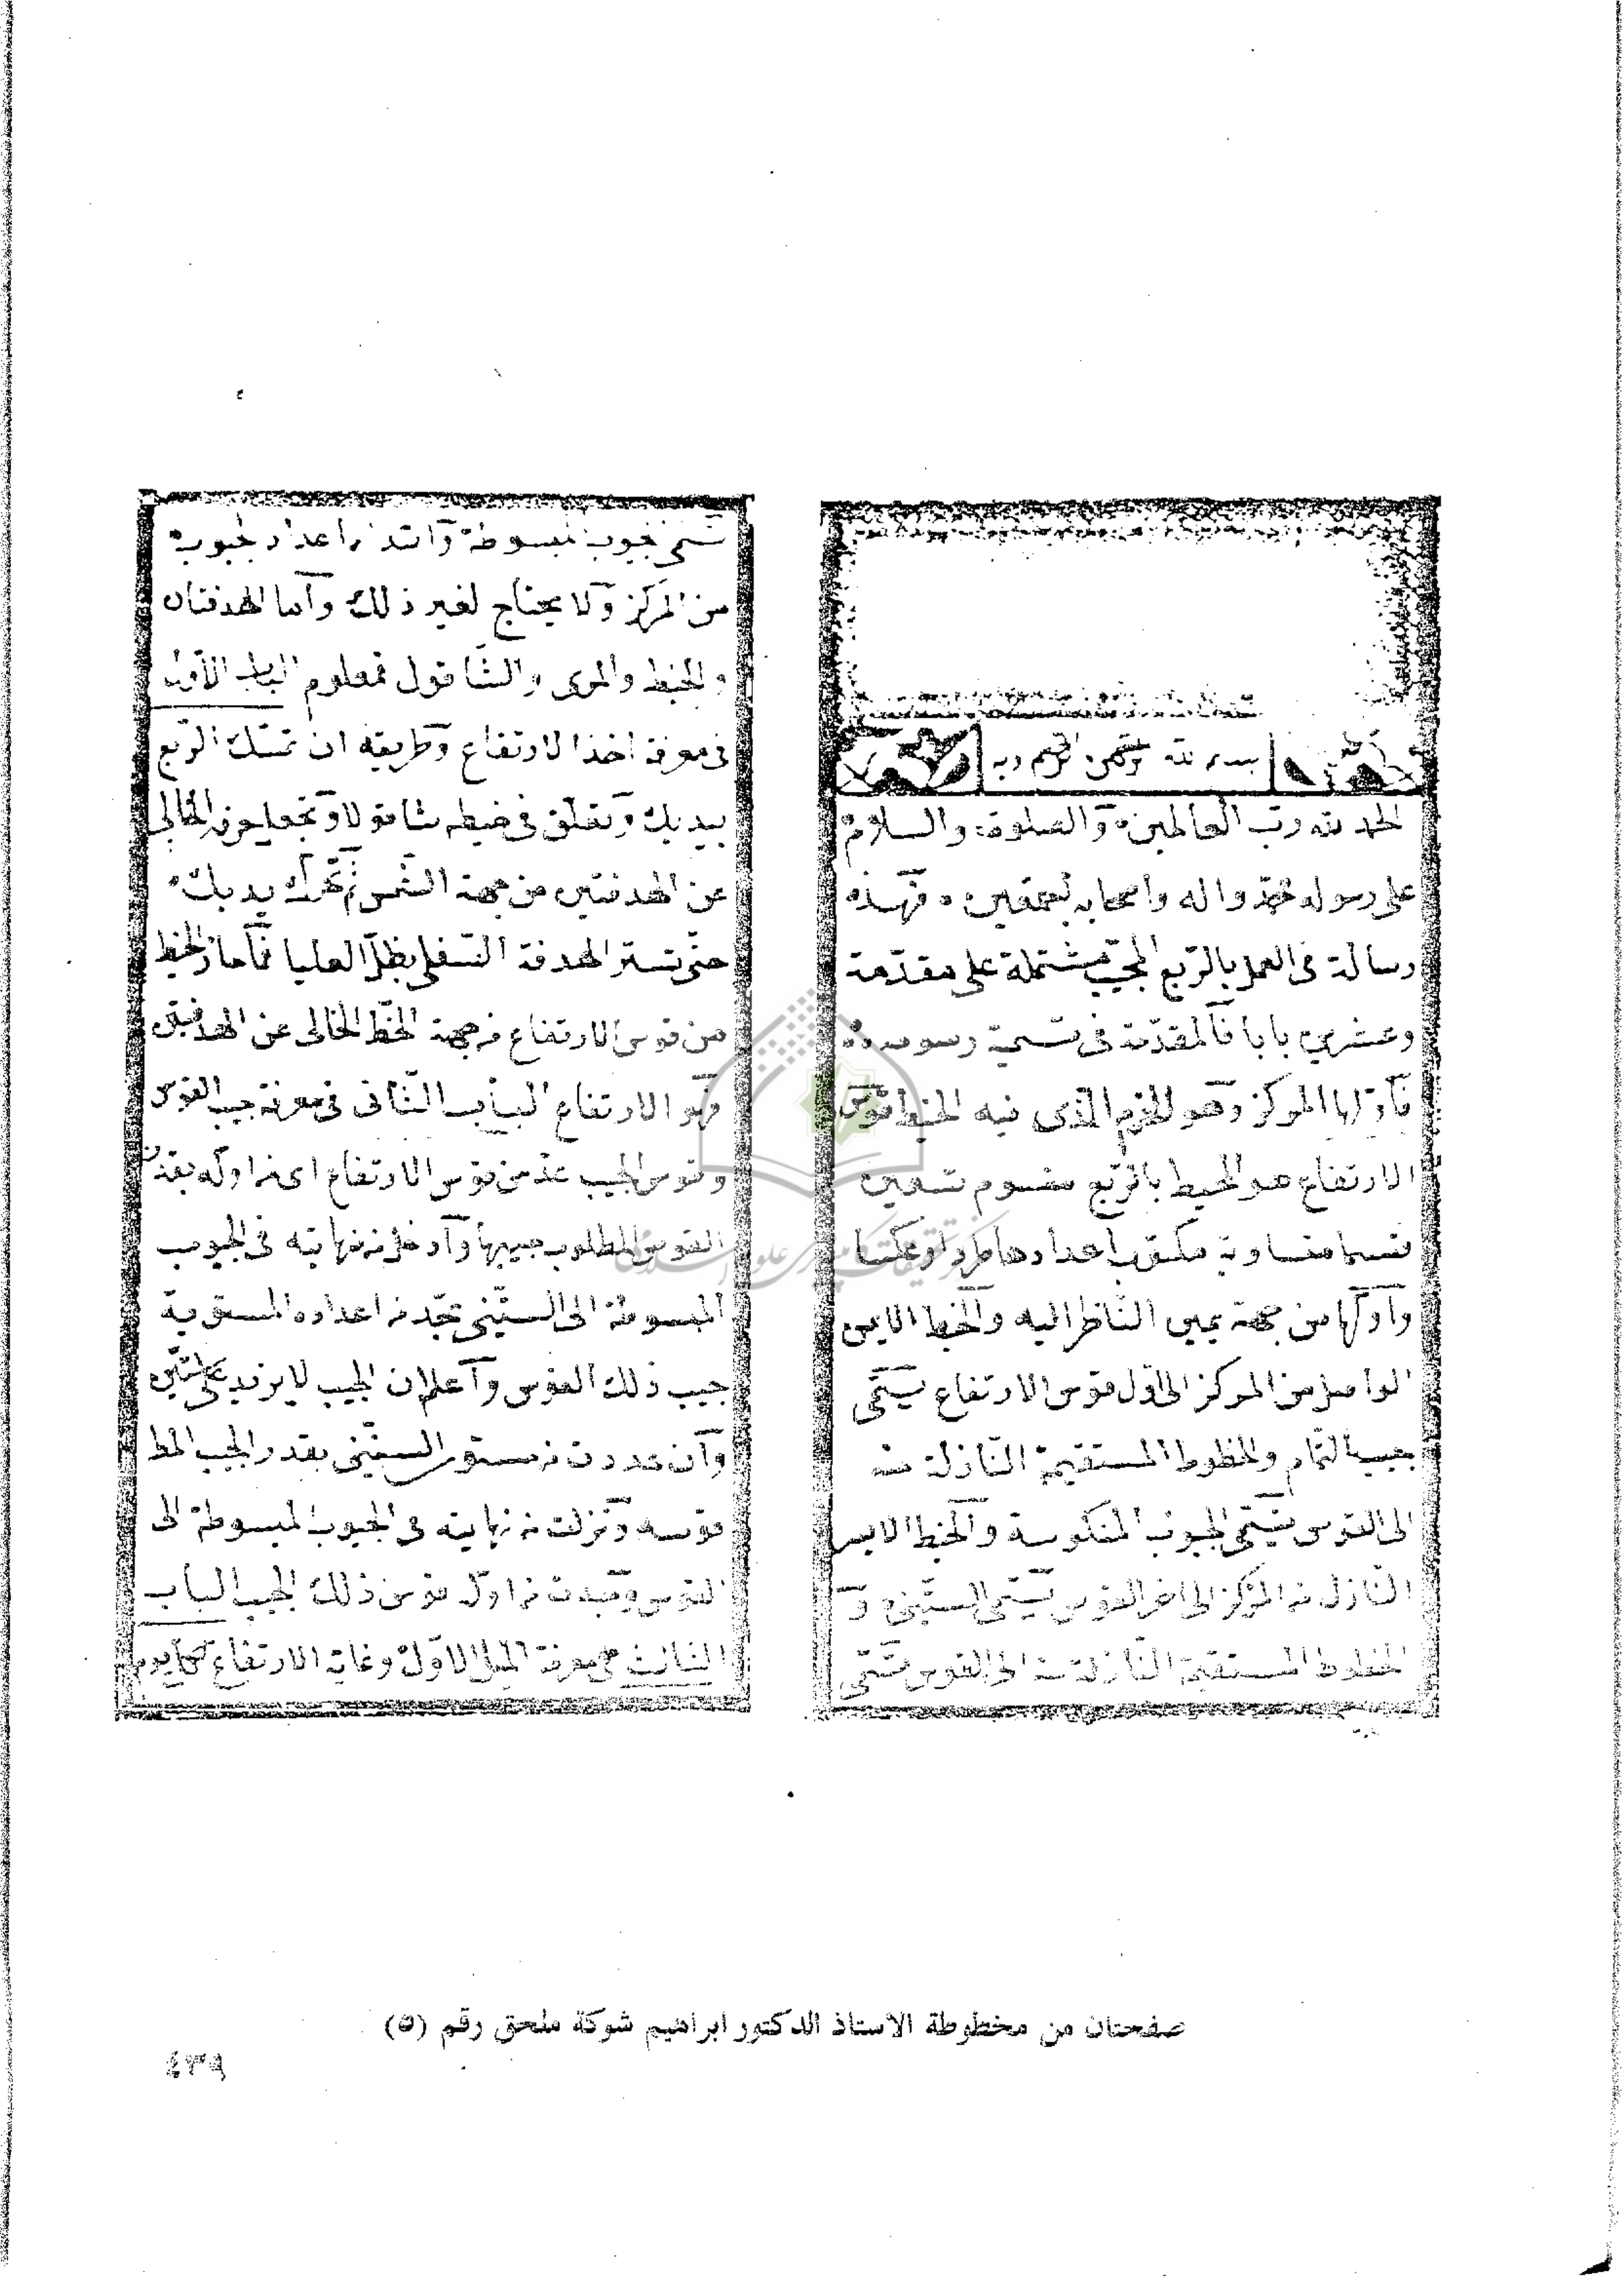 بسم الله الرحمن الرحيم وبه
الحمد لله رب العالمين والصلوة والسلام
على رسوله محمد واله واصحابه اجمعين فهذه
رسالة فى العمل بالربع المجيب مشتملة على مقدمة
وعشرين بابا فالمقدمة فى تسمية رسومه
فاولها المركز وهو الخرم الذى فيه الخيط قوس
الارتفاع هو المحيط بالربع مقسوم تسعين
قسما متساوية مكتوب اعدادها طردا وعكسا
واولها من جهة يمين الناظر اليه والخط الايمن
الواصل من المركز الى اول قوس الارتفاع يسمى
جيب التمام والخطوط المستقيمة النازلة منه
الى القوس تسمى الجيوب المنكوسة والخط الايسر
النازل من المركز الى اخر القوس يسمى الستينى و
الخطوط المستقيمة النازلة منه الى القوس تسمى
تسمى جيوب مبسوطة وابتداء اعداد الجيوب
من المركز ولا يحتاج لغير ذلك واما الهدفتان
والخيط والمرى والشاقول فمعلوم الباب الاول
فى معرفة اخذ الارتفاع وطريقه ان تمسك الربع
بيديك وتعلق فى خيطه شاقولا وتجعل حرفه الخالى
عن الهدفتين من جهة الشمس ثم تحرك يديك
حتى تستر الهدفة السفلى بظل العليا فما حاز الخيط
من قوس الارتفاع من جهة الخط الخالى عن الهدفتين
فهو الارتفاع الباب الثانى فى معرفة جيب القوس
وقوس الجيب عد من قوس الارتفاع اى من اوله بقدر
القوس المطلوب جيبها وادخل من نهايته فى الجيوب
المبسوطة الى الستينى تجد من اعداده المستوية
جيب ذلك القوس واعلم ان الجيب لا يزيد على ستين
وان عددت من مستوى الستينى بقدر الجيب المط
قوسه ونزلت من نهايته فى الجيوب المبسوطة الى
القوس وجدت من اول قوس ذلك الجيب الباب
الثالث فى معرفة الميل الاول وغاية الارتفاع
صفحتان من مخطوطة الاستاذ الدكتور ابراهيم شوكة ملحق رقم (٥)
٤٣٩